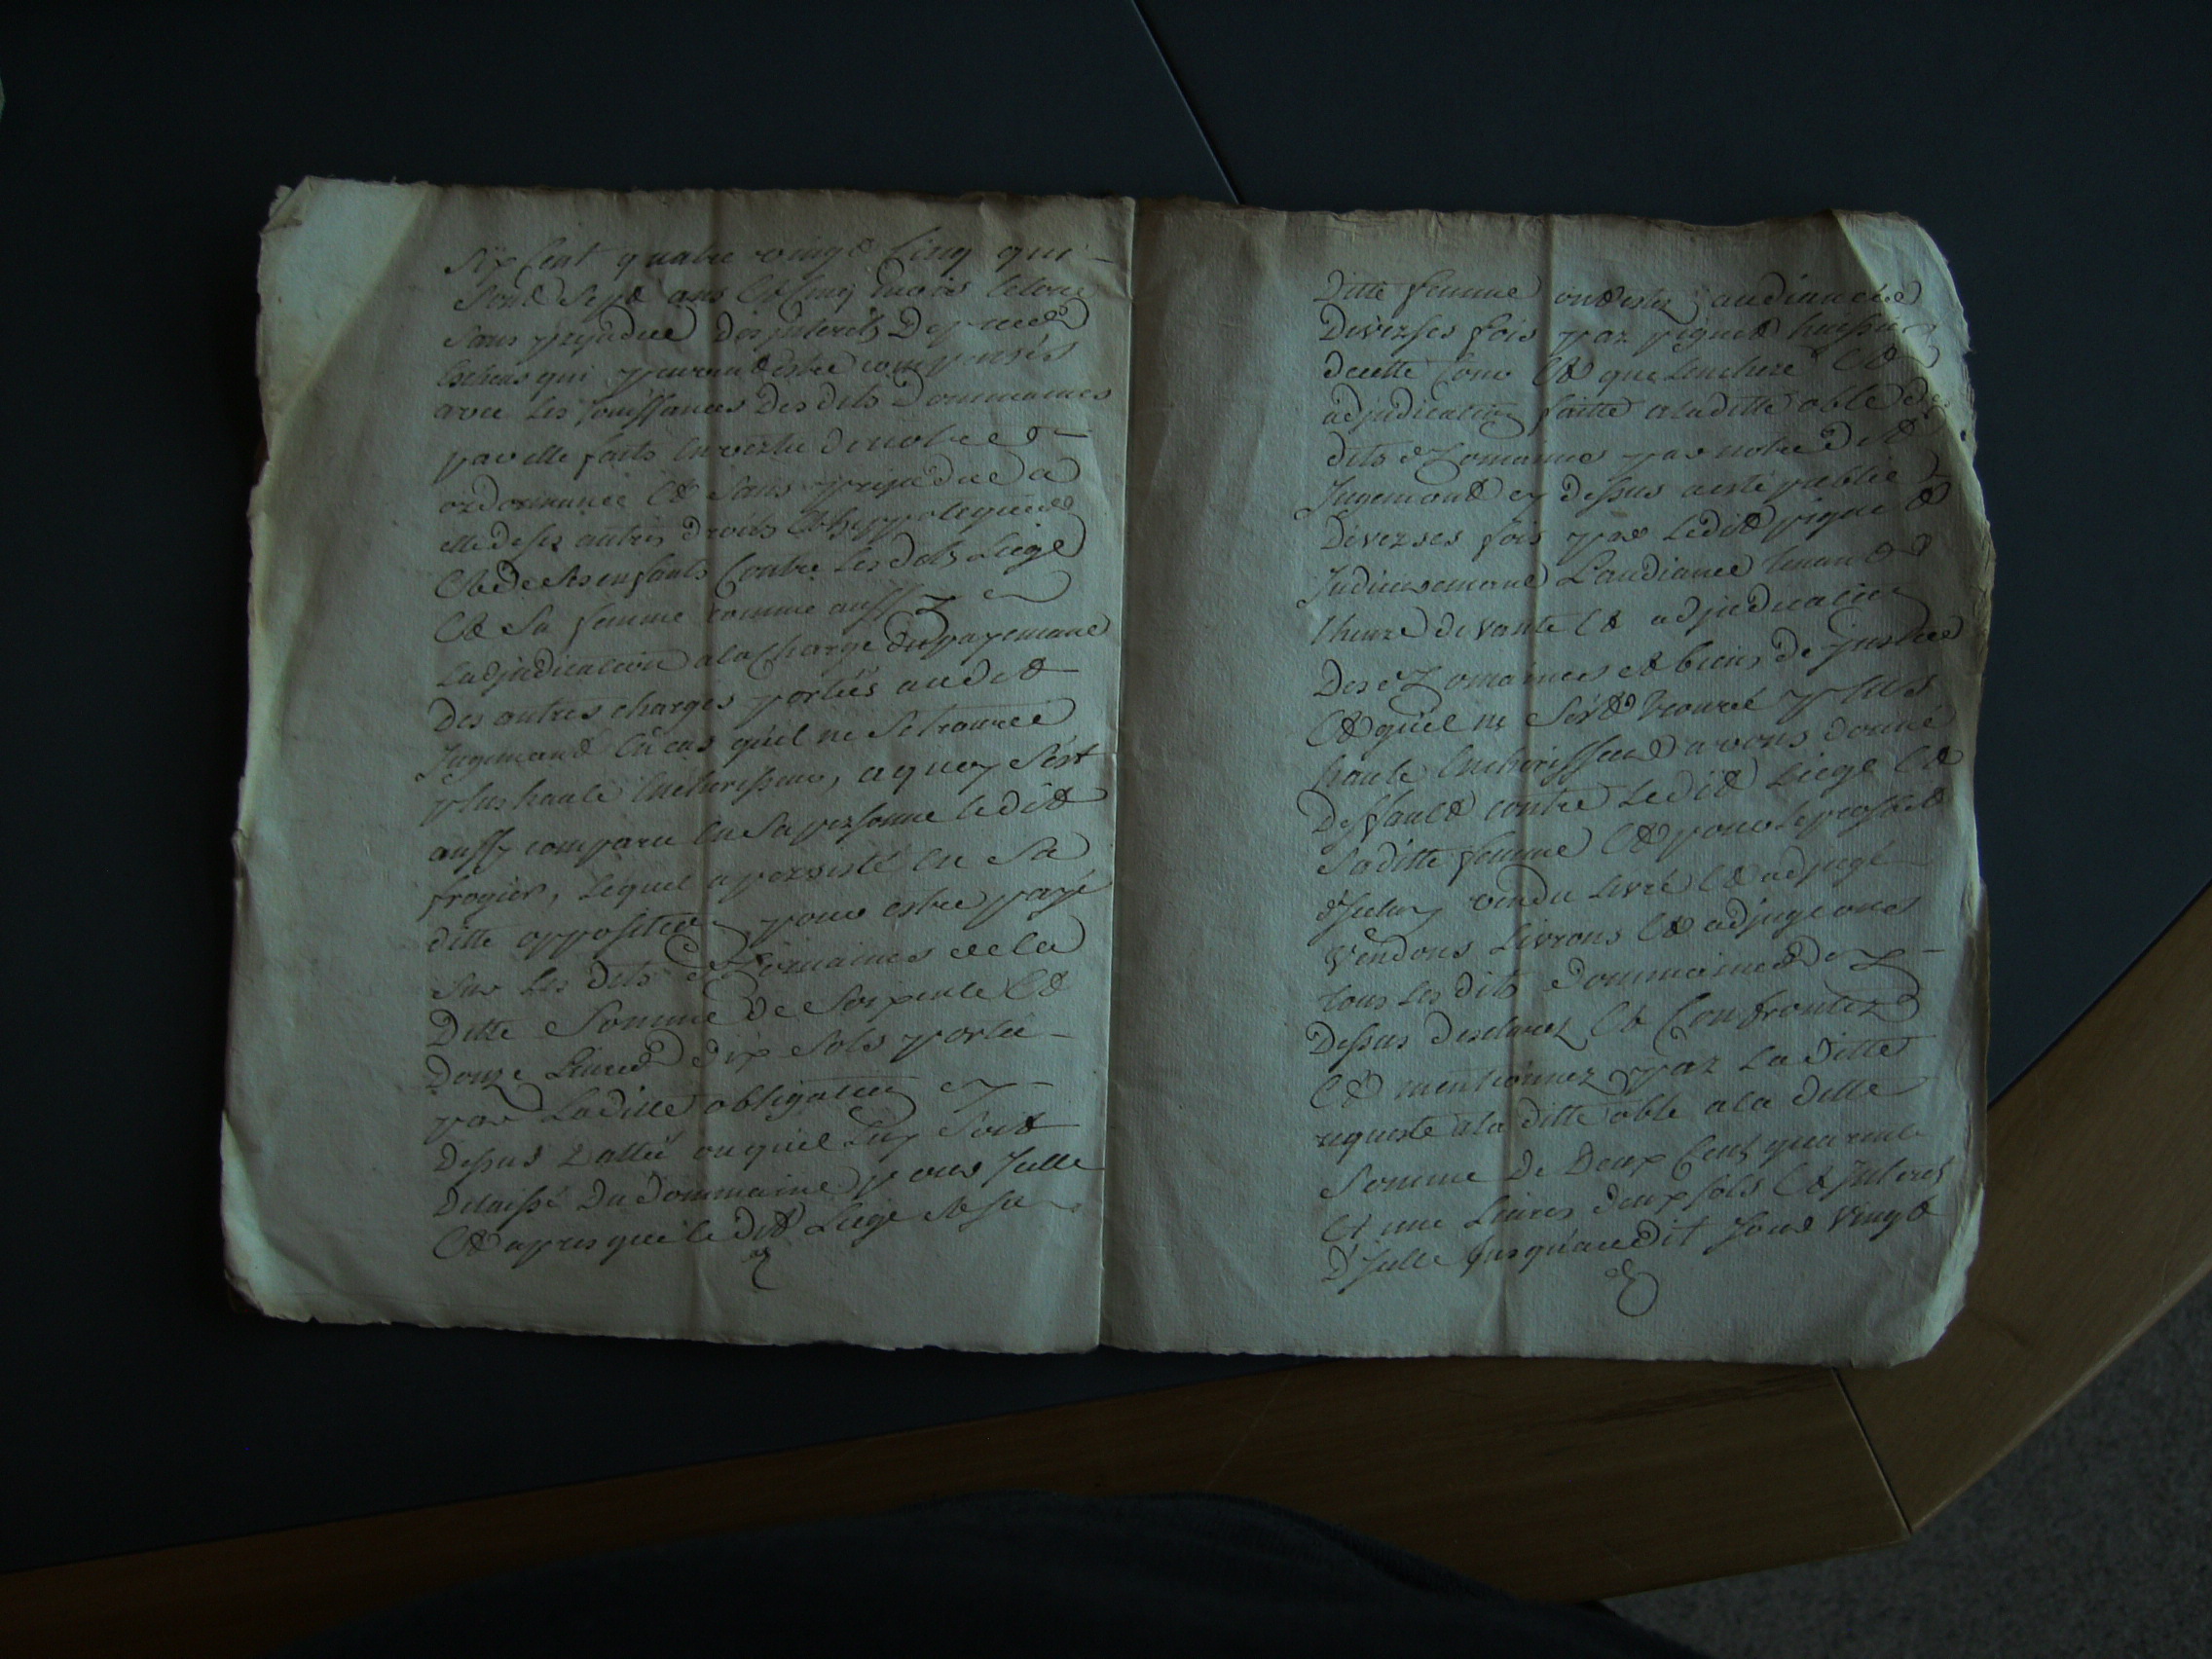 six Cent quatre vingt Cinq qui
sont sept ans Et Cinq mois le tout
sans prejudice des Jnterets
Escheus qui pouront estre compensés
avec les Jouissances des dits Dommaines
par elle faits En vertu de notre
ordonnance Et sans prejudice a
elle de ses autres droits Et hyppoteques
Et de ses enfants Contre les dits Liege
Et Sa femme comme aussy
Ladjudication a la Charge du payemant
Des autres charges portées audit
Jugemant En cas quil ne se trouvee
plus haute Encherisseur, a quoy s'est
aussy comparu En Sa personne ledit
frogier, lequel a persisté En Sa
ditte opposition pour estre payé
sur Les dits Domaines de la
Ditte Somme de Soixente Et
Douze Livres dix Sols portée
par Laditte obligation cy
Dessus dattée ou quil Luy Soit
Delaissé Du Dommaine pour Jcelle
Et apres que le dit Liege Et sa
Ditte femme ont estez audiancés
Diverses fois par piquet huissier
de cette Cour Et que Lenchere Et
adjudication faitte a laditte oble des
dits Domaines par notre dit
Jugemant cy dessus a esté publié
Diverses fois par Ledit piquet
Judiciremant L'audiance tenant
l'heure de vante Et adjudication
Des Domaines et biens de Justice
Et qu'il ne s'est trouvé plus
haute Encherisseur avons donné
Deffault contre Ledit Liege Et
Saditte femme Et pour le proffit
d'Jceluy vendu Livré Et adjugé
Vendons Livrons Et adjugeons
tous Les dits Dommaines cy
Dessus desclarez Et Confrontez
Et mentionnez par La ditte
requeste a la ditte oble a la ditte
Somme De Deux Cent quarante
Et une Livres deux sols Et Jnterets
D'Jcelle Jusqu'audit Jour Vingt